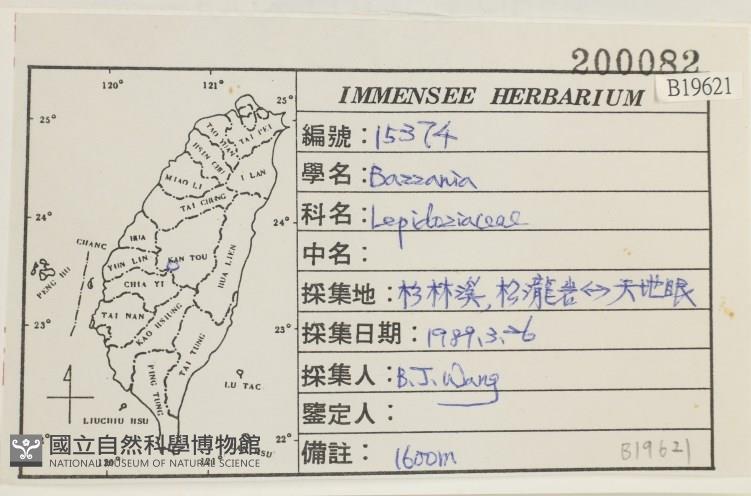 200082
B19621
IMMENSEE HERBARIUM
編號：15374
學名：Bazzania
科名：Lepidoziaceae
中名：
採集地：杉林溪，松瀧岩↔天地眼
採集日期：1989.3.26
採集人：B.J.Wang
鑒定人：
備註：1600m
B19621
120°
121°
25°
25°
24°
24°
23°
23°
22°
120°
121°
TAI PEI
TAO YUAN
HSIN CHU
I LAN
MIAO LI
TAI CHUNG
CHANG
HUA
NAN TOU
YUN LIN
HUA LIEN
PENG HU
CHIA YI
TAI NAN
KAO HSIUNG
TAI TUNG
PING TUNG
LU TAO
LIUCHIU HSU
國立自然科學博物館
NATIONAL MUSEUM OF NATURAL SCIENCE